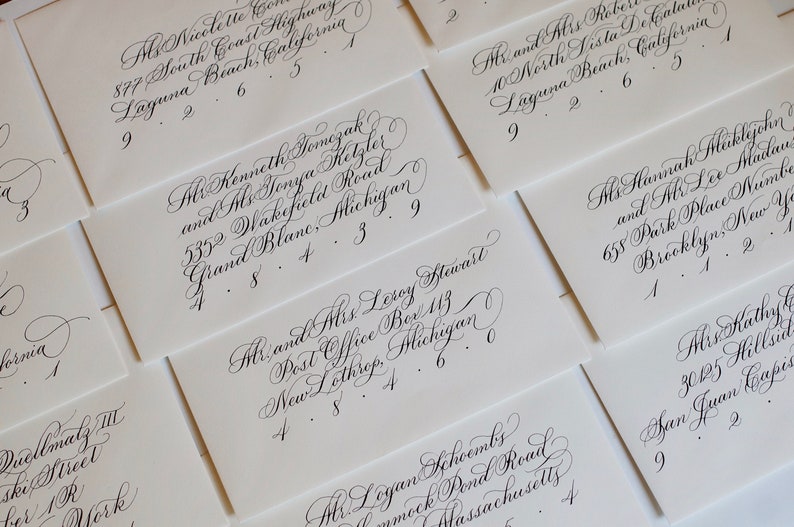 Ms. Nicolette
877 South Coast Highway
Laguna Beach, California
9 · 2 · 6 · 5 · 1
Mr. and Mrs. Robert
10 North Vista De Catalina
Laguna Beach, California
9 · 2 · 6 · 5 · 1
2
3
Mr. Kenneth Tomczak
and Ms. Tonya Ketzler
5352 Wakefield Road
Grand Blanc, Michigan
4 · 8 · 4 · 3 · 9
Ms. Hannah Meiklejohn
and Mr. Lee Madaus
658 Park Place Number
Brooklyn, New Yo
1 · 1 · 2 · 1
Mr. and Mrs. Leroy Stewart
Post Office Box 113
New Lothrop, Michigan
4 · 8 · 4 · 6 · 0
ifornia
· 1
Mrs. Kathy
30125 Hillsid
San Juan Capis
9 · 2 ·
Quellmalz III
ski Street
ber 1R
York
Mr. Logan Schoembs
mmock Pond Road
Massachusetts
5 · 4